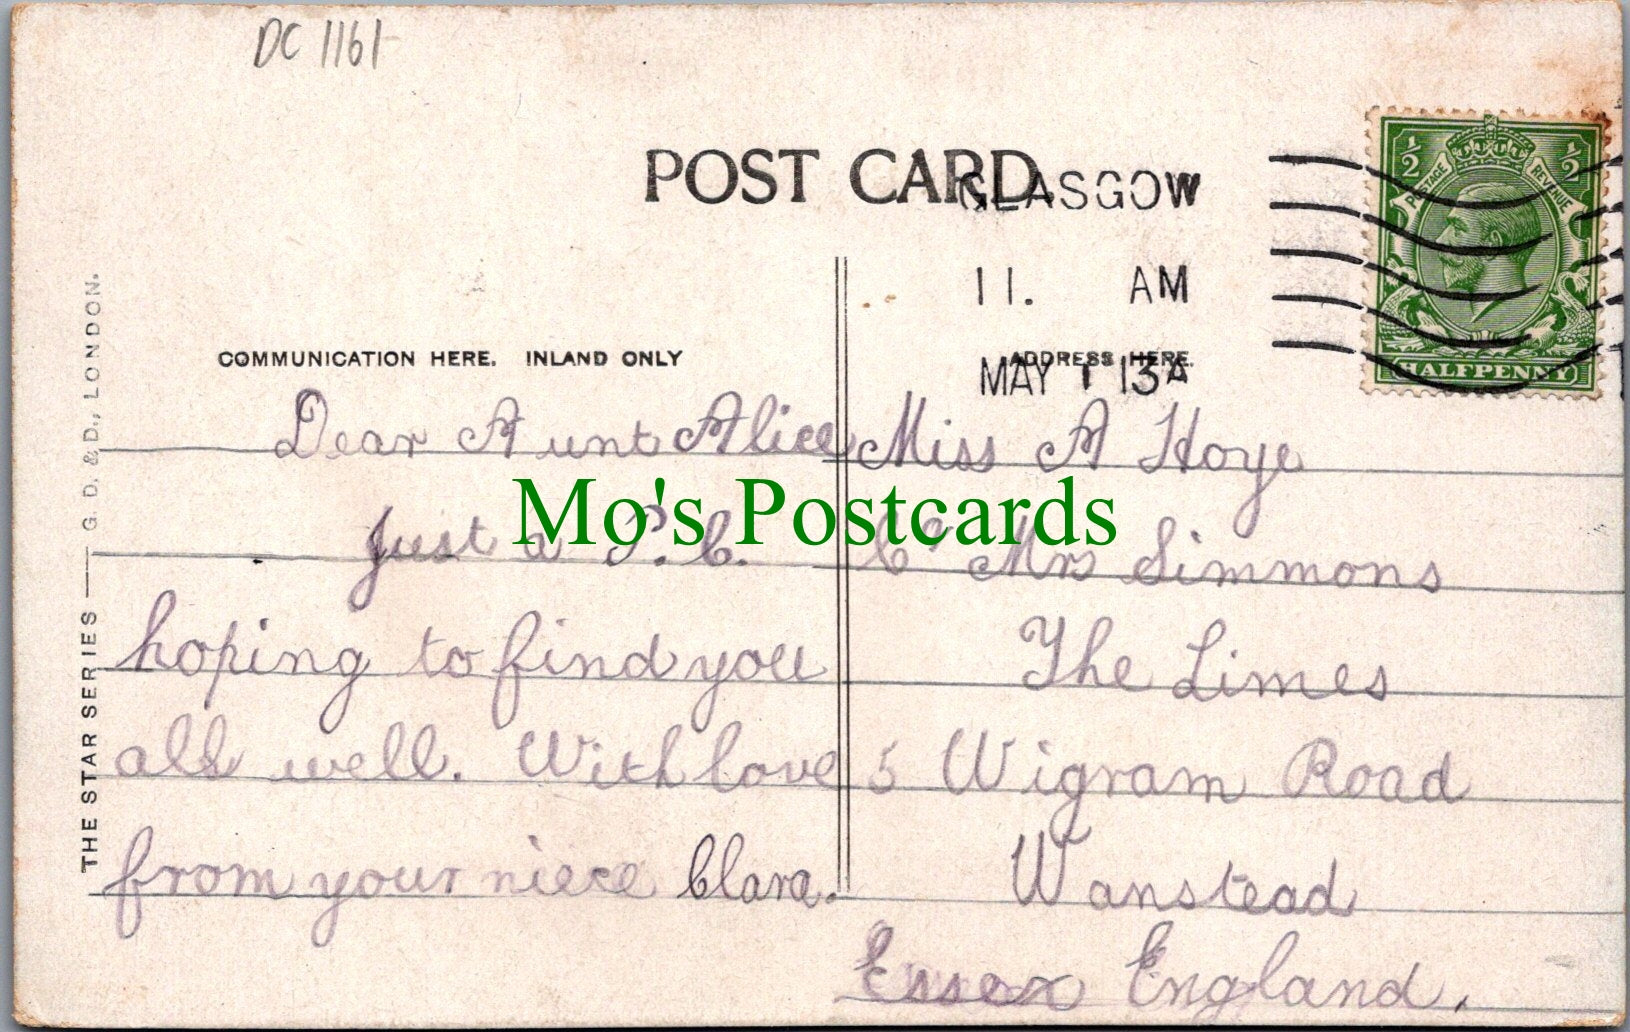 DC 1161
POST CARD
GLASGOW
11. AM
MAY 1 13A
½ ½
POSTAGE REVENUE
HALFPENNY
COMMUNICATION HERE. INLAND ONLY
ADDRESS HERE.
Dear Aunt Alice
Just a P.C.
hoping to find you
all well. With love
from your niece Clara.
Miss A Hoye
C/o Mrs Simmons
The Limes
5 Wigram Road
Wanstead
Essex England.
THE STAR SERIES — G. D. & D., LONDON.
Mo's Postcards